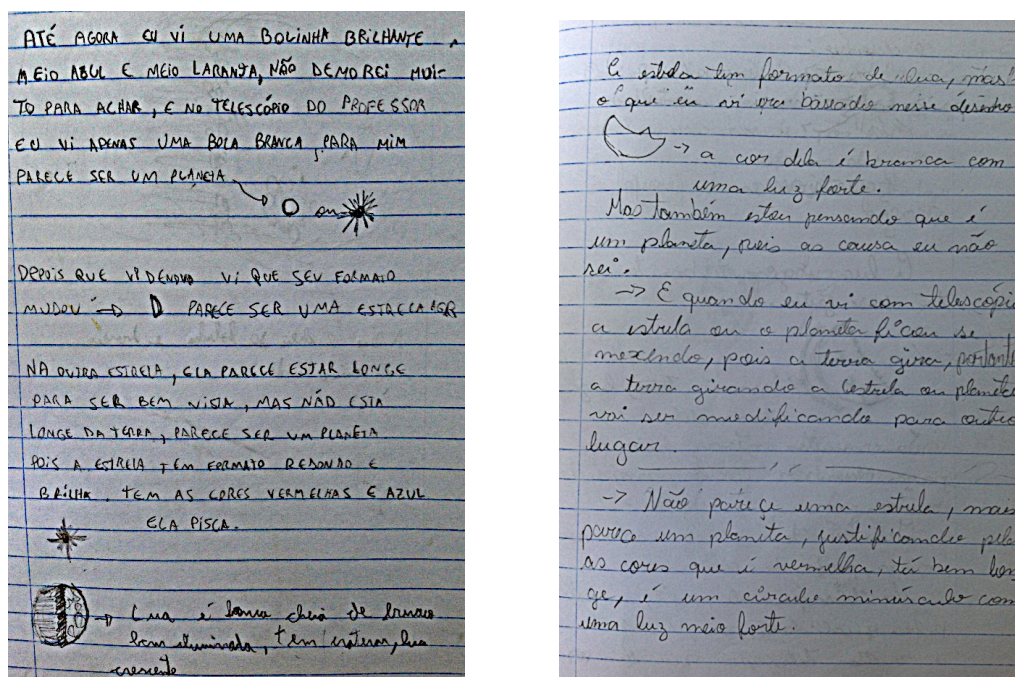 ATÉ AGORA EU VI UMA BOLINHA BRILHANTE,
MEIO AZUL E MEIO LARANJA, NÃO DEMOREI MUI-
TO PARA ACHAR, E NO TELESCÓPIO DO PROFESSOR
EU VI APENAS UMA BOLA BRANCA, PARA MIM
PARECE SER UM PLANETA
ou
DEPOIS QUE VI DENOVO VI QUE SEU FORMATO
MUDOU → PARECE SER UMA ESTRELA
NA OUTRA ESTRELA, ELA PARECE ESTAR LONGE
PARA SER BEM VISTA, MAS NÃO ESTÁ
LONGE DA TERRA, PARECE SER UM PLANETA
POIS A ESTRELA TEM FORMATO REDONDO E
BRILHA, TEM AS CORES VERMELHAS E AZUL
ELA PISCA.
→ Lua é cheia de buraco
bem iluminada, tem lua
crescente
tem formato de lua, mas
o que eu vi era nesse desenho
→ a cor dela é branca com
uma luz forte.
Mas também estou pensando que é
um planeta, pois as causa eu não
sei.
→ E quando eu vi com telescópi
a estrela ou o planeta ficou se
mexendo, pois a terra gira, portant
a terra girando a estrela ou planeta
vai ser modificando para outro
lugar.
→ Não pareçe uma estrela, mais
pareçe um planeta, justificando pel
as cores que é vermelha, tá bem lon
ge, é um círculo minúsculo com
uma luz meio forte.